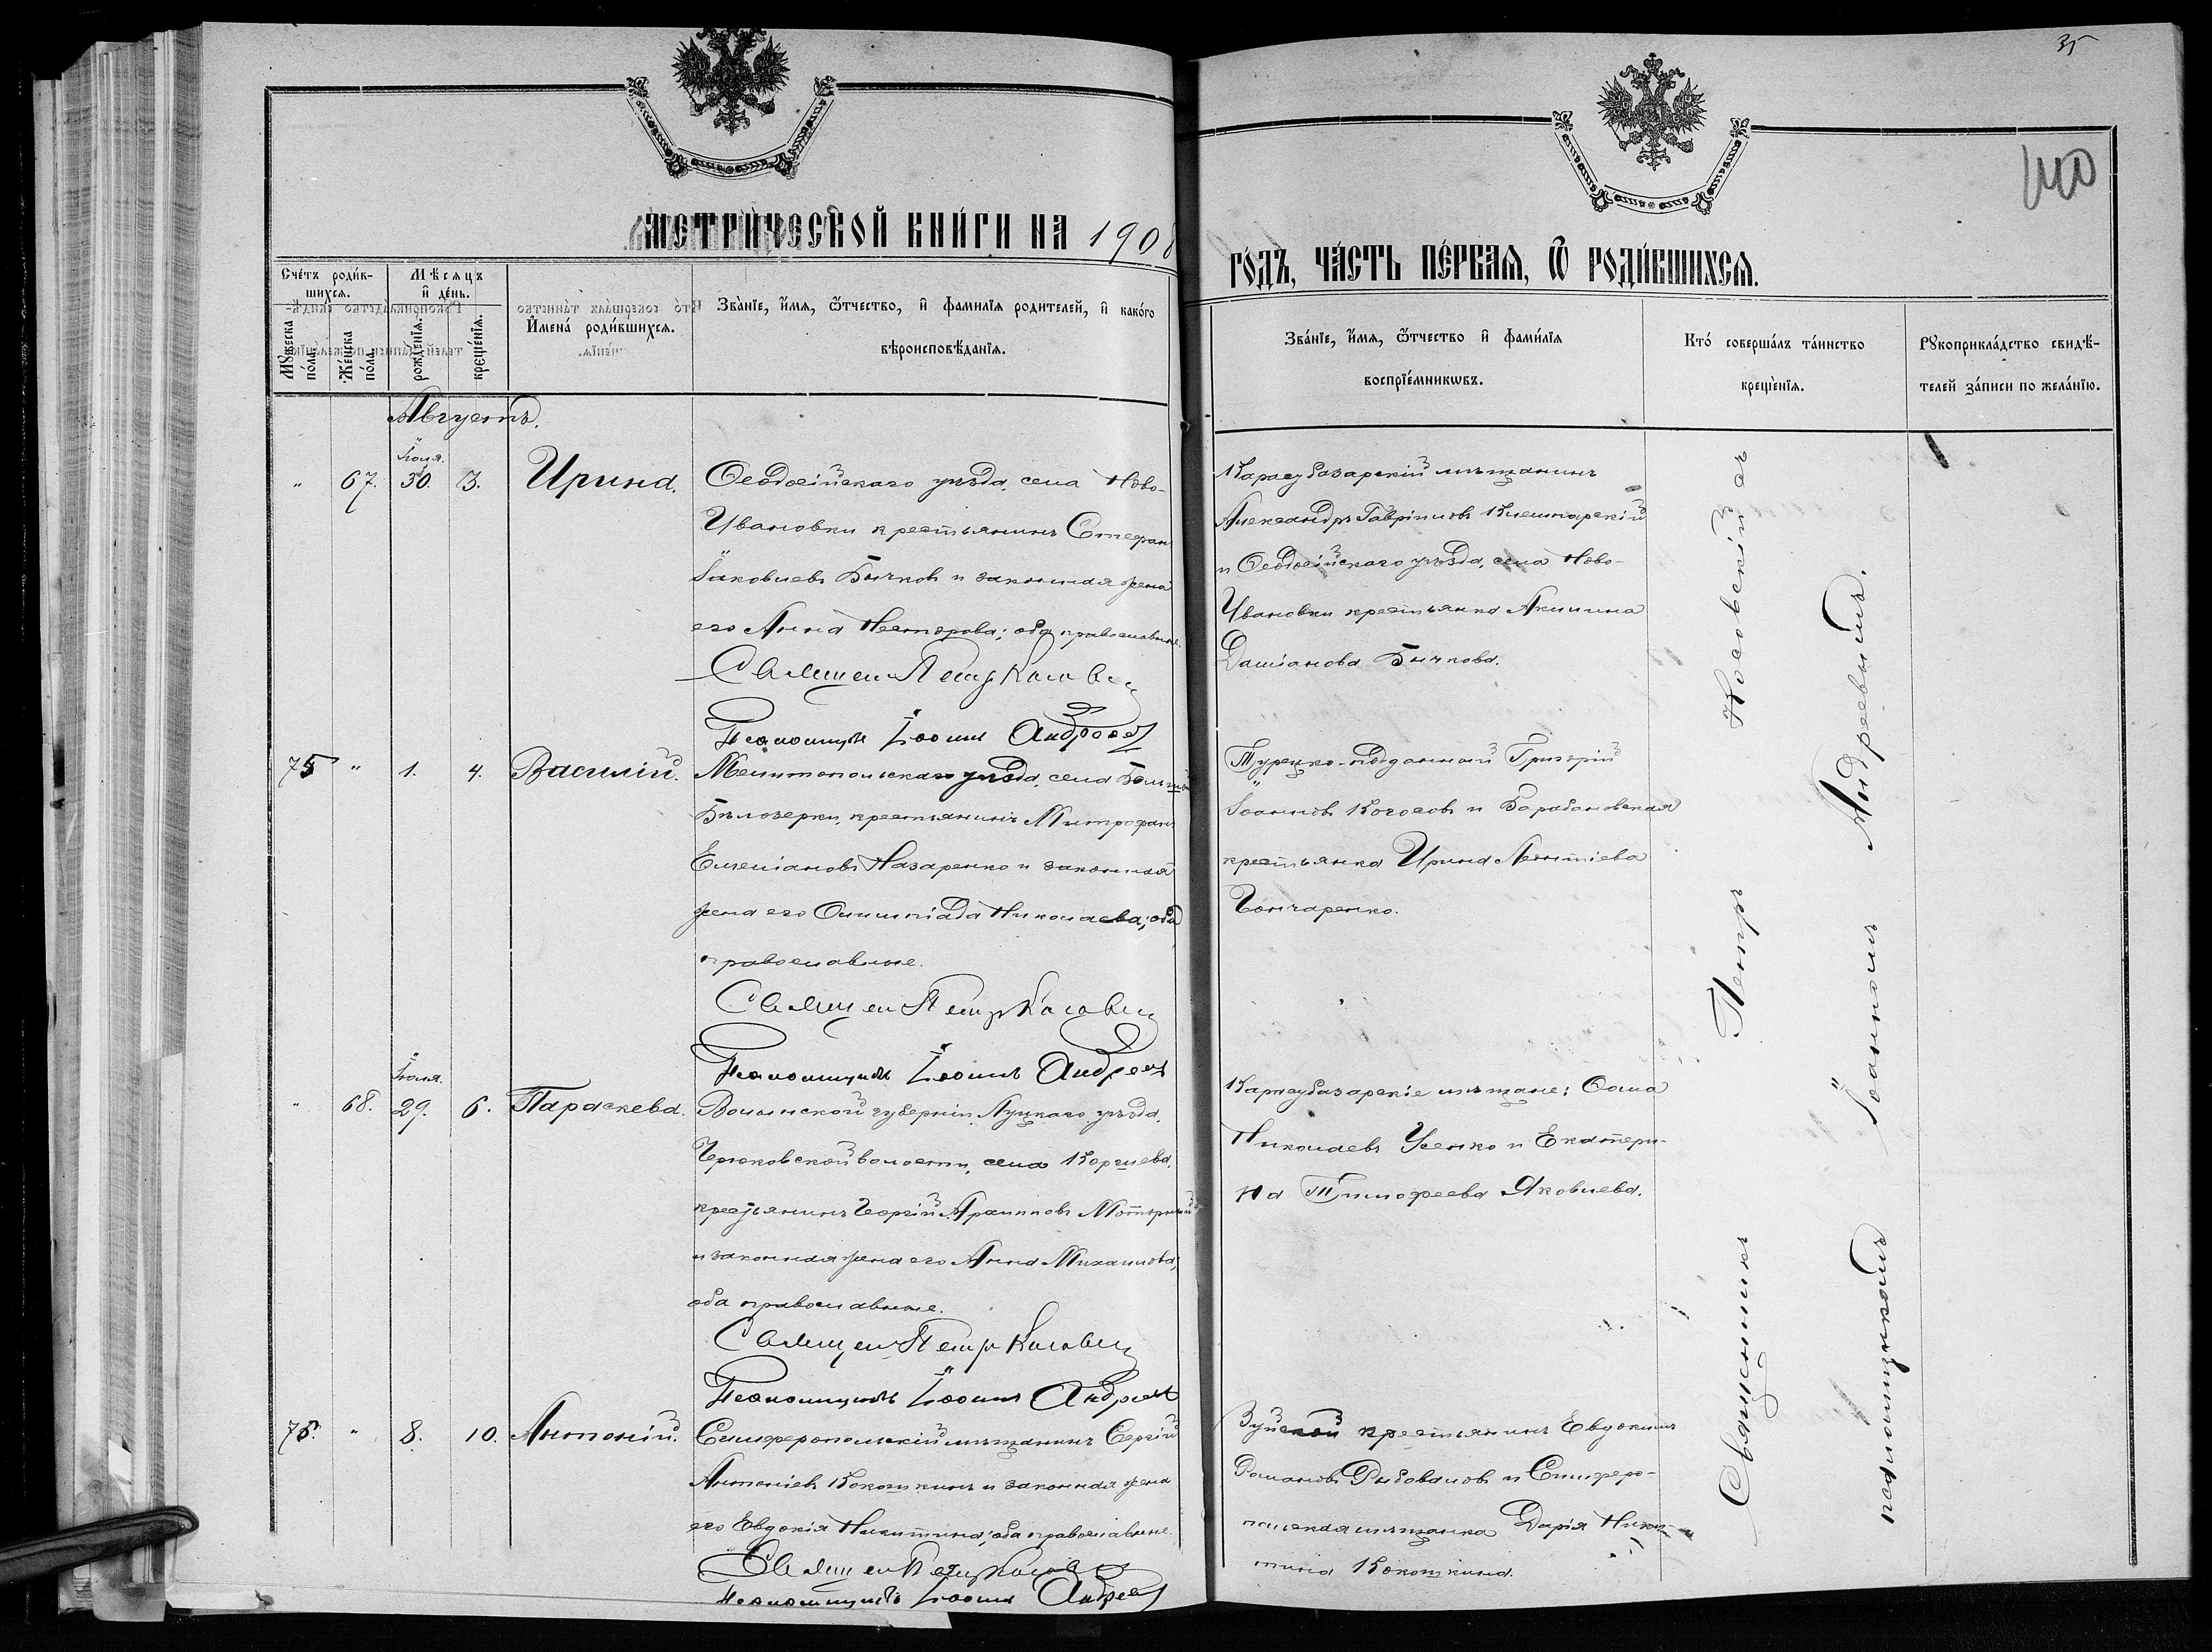 35
100
МЕТРИЧЕСКОЙ КНИГИ НА 1908
ГОДЪ, ЧАСТЬ ПЕРВАЯ, Ѿ РОДИВШИХСЯ.
Счетъ родившихся.
Мужеска пола.
Женска пола.
Мѣсяцъ и день.
рожденія.
крещенія.
Имена родившихся.
Званіе, имя, ѿтчество, и фамилія родителей, и какого
вѣроисповѣданія.
Званіе, имя, ѿтчество и фамилія
воспріемниковъ.
Кто совершалъ таинство
крещенія.
Рукоприкладство свидѣ-
телей записи по желанію.
Августъ.
" 67. Іюля. 30. 3. Ирина.
Ѳеодосійскаго уѣзда, села Ново-
Ивановки крестьянинъ Стефанъ
Іаковлевъ Бычковъ и законная жена
его Анна Несторова; оба православные.
Священ Петръ Косовск
Псаломщикъ Іоаннъ Андреев
Карасубазарскій мѣщанинъ
Александръ Гавріиловъ
и Ѳеодосійскаго уѣзда, села Ново-
Ивановки крестьянка Акилина
Даміанова Бычкова.
75 " 1. 4. Василій.
Мелитопольскаго уѣзда, села Больш
Бѣлозерки, крестьянинъ Митрофанъ
Емеліановъ Назаренко и законная
жена его Олимпіада Николаева; оба
православные.
Священ Петръ Косовск
Псаломщикъ Іоаннъ Андреев
Турецко-подданный Григорій
Іоанновъ и Барабановская
крестьянка Ирина Леонтіева
Гончаренко.
" 68. Іюля. 29. 6. Параскева.
Волынской губерніи, Луцкаго уѣзда,
волости, села
крестьянинъ Георгій
и законная жена его Анна Михаилова,
оба православные.
Священ Петръ Косовск
Псаломщикъ Іоаннъ Андреев
Карасубазарскіе мѣщане: Ѳома
Николаевъ Усенко и Екатери-
на Тимофеева Яковлева.
76. " 8. 10. Антоній.
Симферопольскій мѣщанинъ Сергій
Антоніевъ Кокошкинъ и законная жена
его Евдокія Никитина; оба православные.
Священ Петръ Косовск
Псаломщикъ Іоаннъ Андреев
Зуйской крестьянинъ Евдокимъ
Романовъ и Симферо-
польская мѣщанка Дарія Ники-
тина Кокошкина.
Священникъ Петръ Косовскій съ
псаломщикомъ Іоанномъ Андреевымъ.